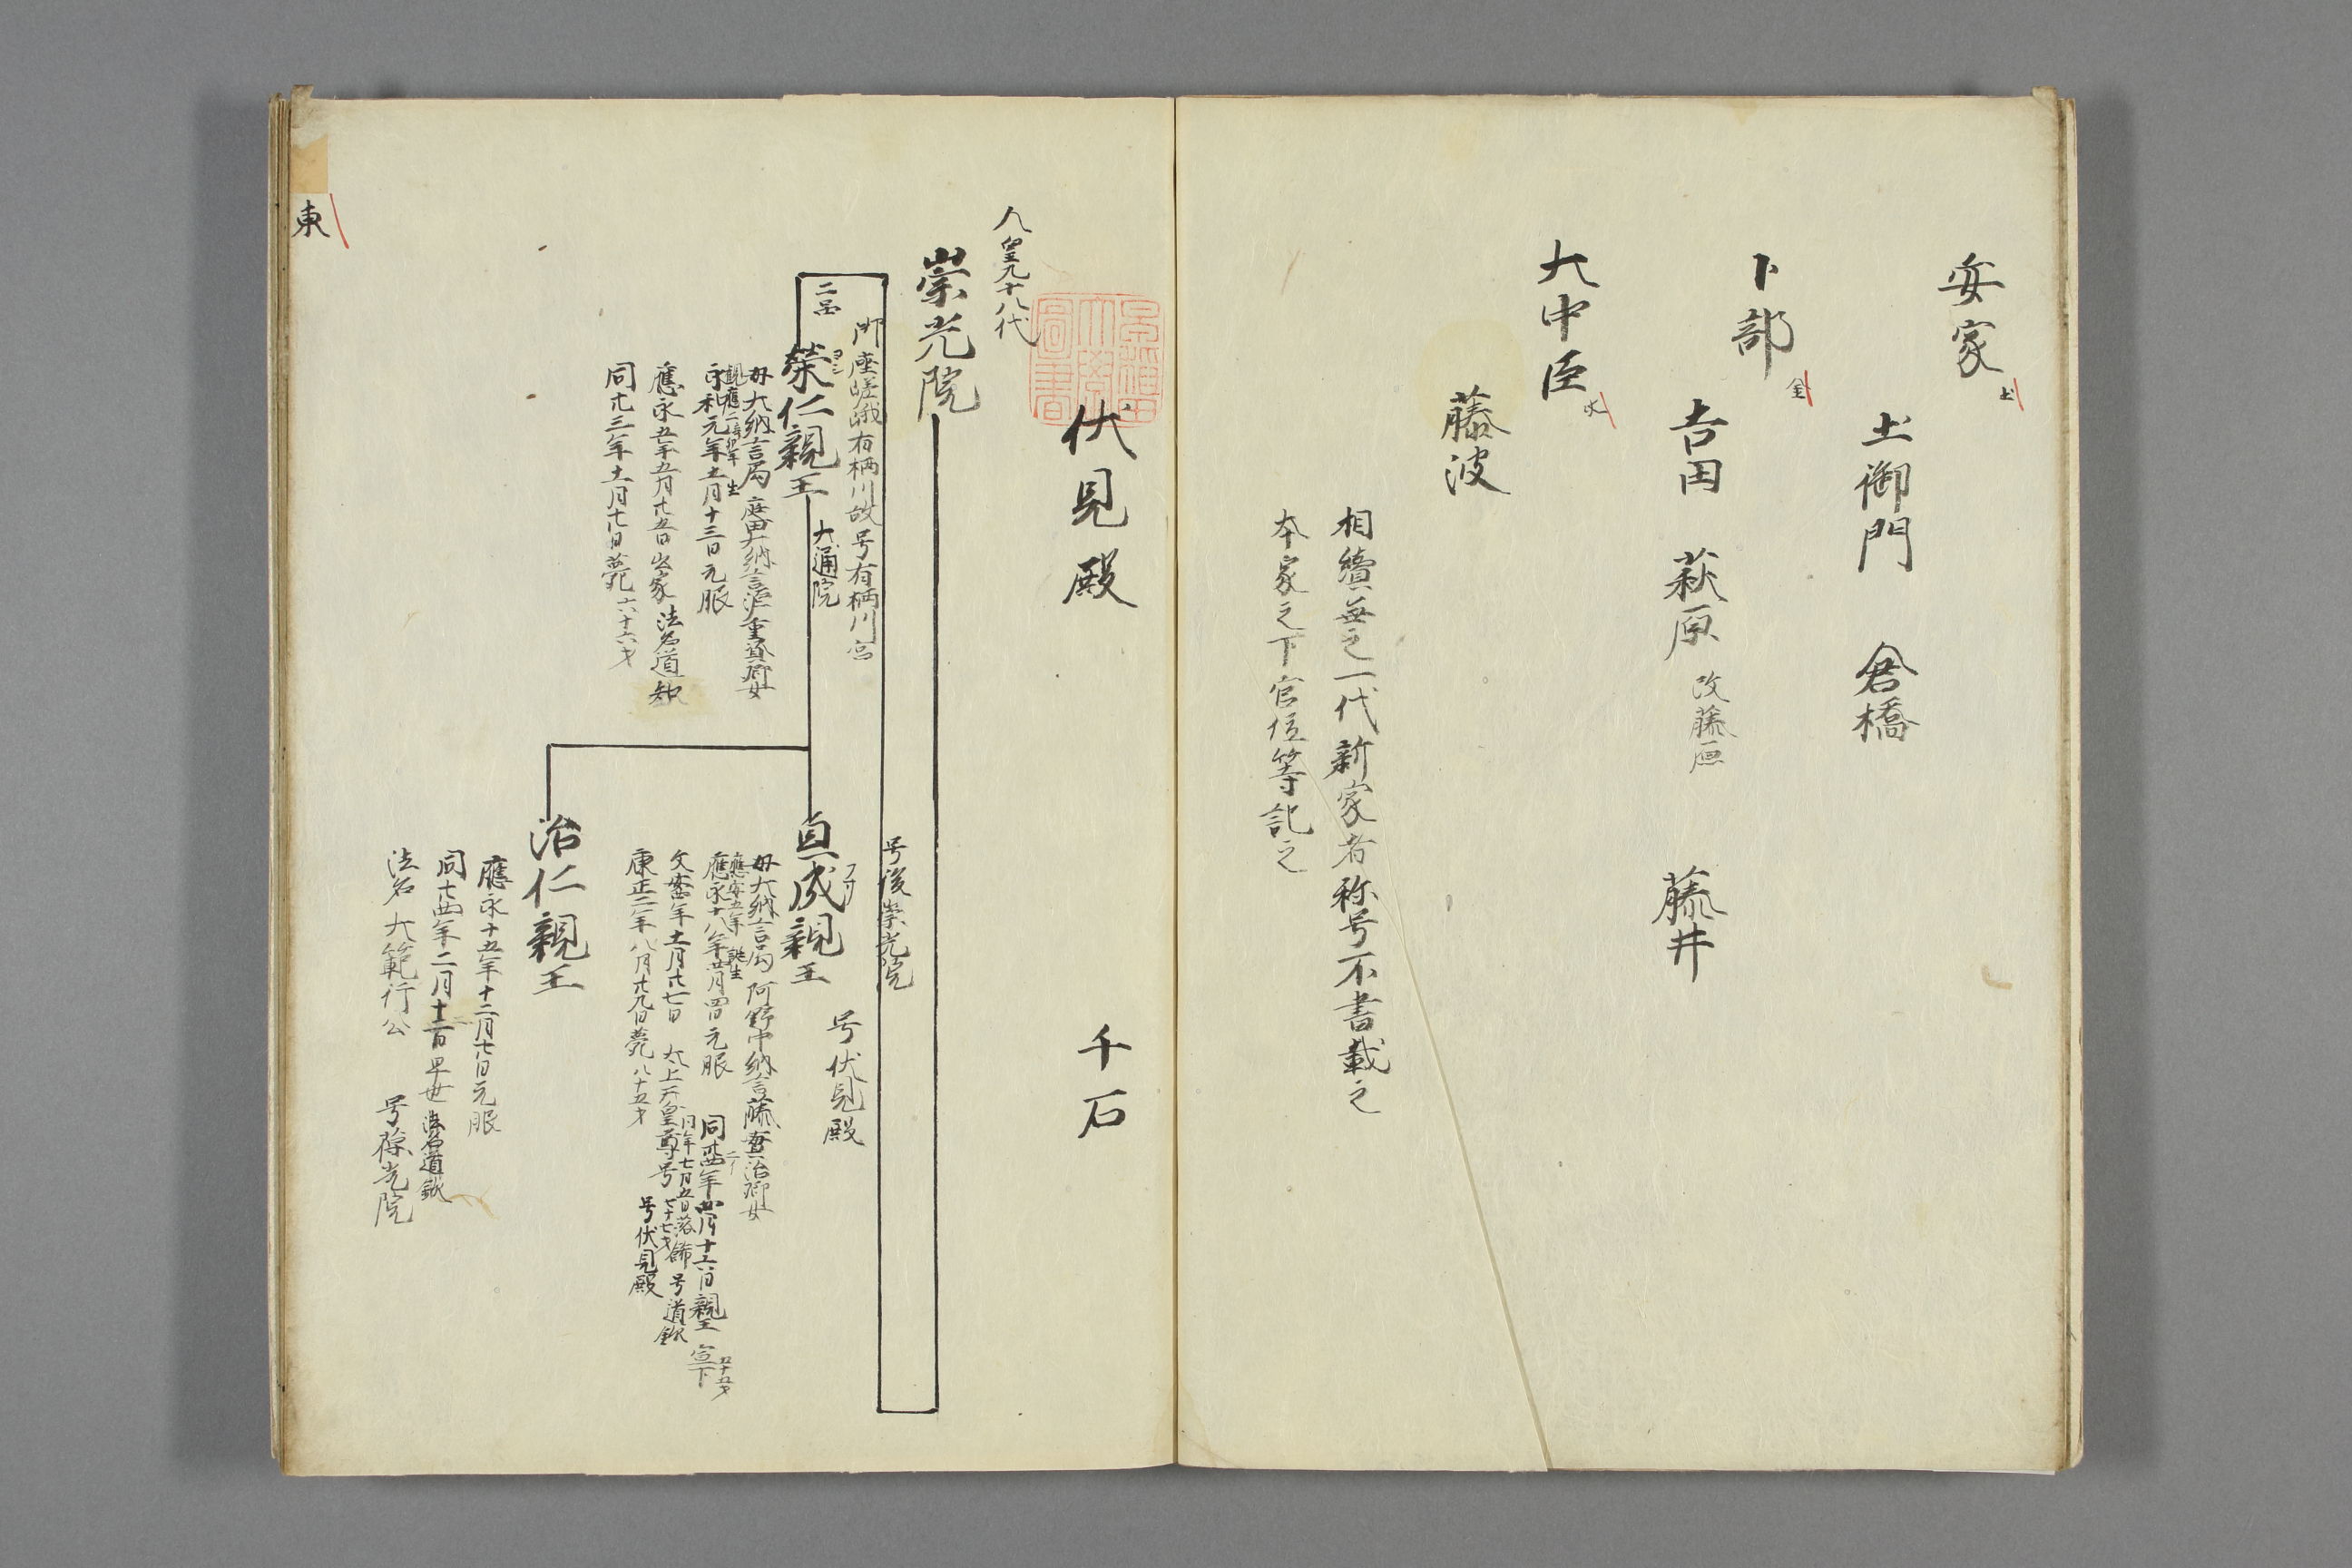 安家 土
土御門 倉橋
卜部 金
吉田 萩原 改藤原 藤井
大中臣 水
藤波
相續無之一代新家者称号不書載之
本家之下官位等記之
伏見殿 千石
人皇九十八代
崇光院
御座嵯峨有栖川故号有栖川宮
二品
栄仁親王 大通院
ヨシ
母大納言局 庭田大納言源重資卿女
観應二辛卯年生
永和元年十一月十三日元服
應永五年五月廿五日出家 法名道智
同廿三年十一月廿日薨 六十六才
号後崇光院
貞成親王 号伏見殿
フサ
母大納言局 阿野中納言藤實治卿女
應安五年 誕生
應永十八年四月四日元服 同廿四年四月十六日親王宣下
五十五才
同年七月五日落飾 号道欽
文安四年十一月廿七日 太上天皇尊号 七十七才
康正二年八月廿九日薨 八十五才 号伏見殿
治仁親王
應永十五年十二月廿日元服
同廿四年二月十二日早世 法名道欽
法名 大範行公 号葆光院
東